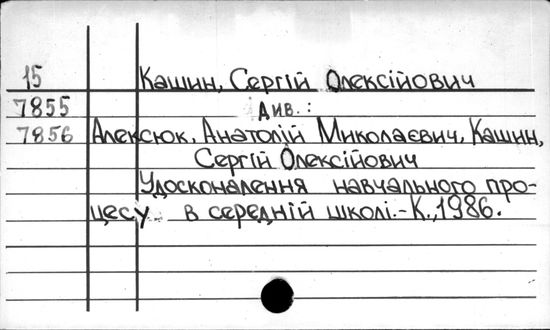 15 Кашин, Сергій Олексійович
7855 Див.:
7856 Алексюк, Анатолій Миколаєвич, Кашин,
Сергій Олексійович
Удосконалення навчального про-
цесу в середній школі.-К.,1986.